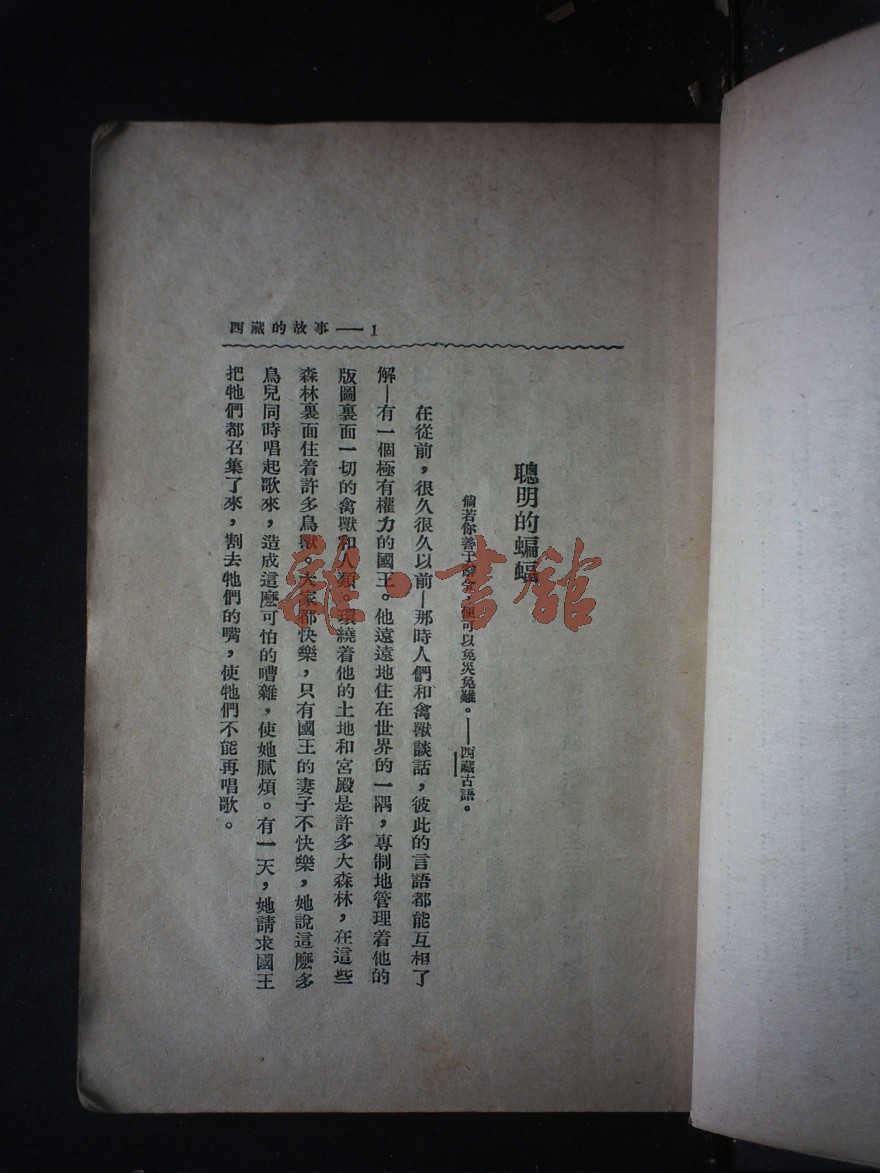 西藏的故事——1
聰明的蝙蝠
倘若你善于辭令，便可以免災免難。——西藏古語。
在從前，很久很久以前—那時人們和禽獸談話，彼此的言語都能互相了
解—有一個極有權力的國王。他遠遠地住在世界的一隅，專制地管理着他的
版圖裏面一切的禽獸和人類。環繞着他的土地和宮殿是許多大森林，在這些
森林裏面住着許多鳥獸。大家都快樂，只有國王的妻子不快樂，她說這麽多
鳥兒同時唱起歌來，造成這麽可怕的嘈雜，使她膩煩。有一天，她請求國王
把牠們都召集了來，割去牠們的嘴，使牠們不能再唱歌。
雜·書館